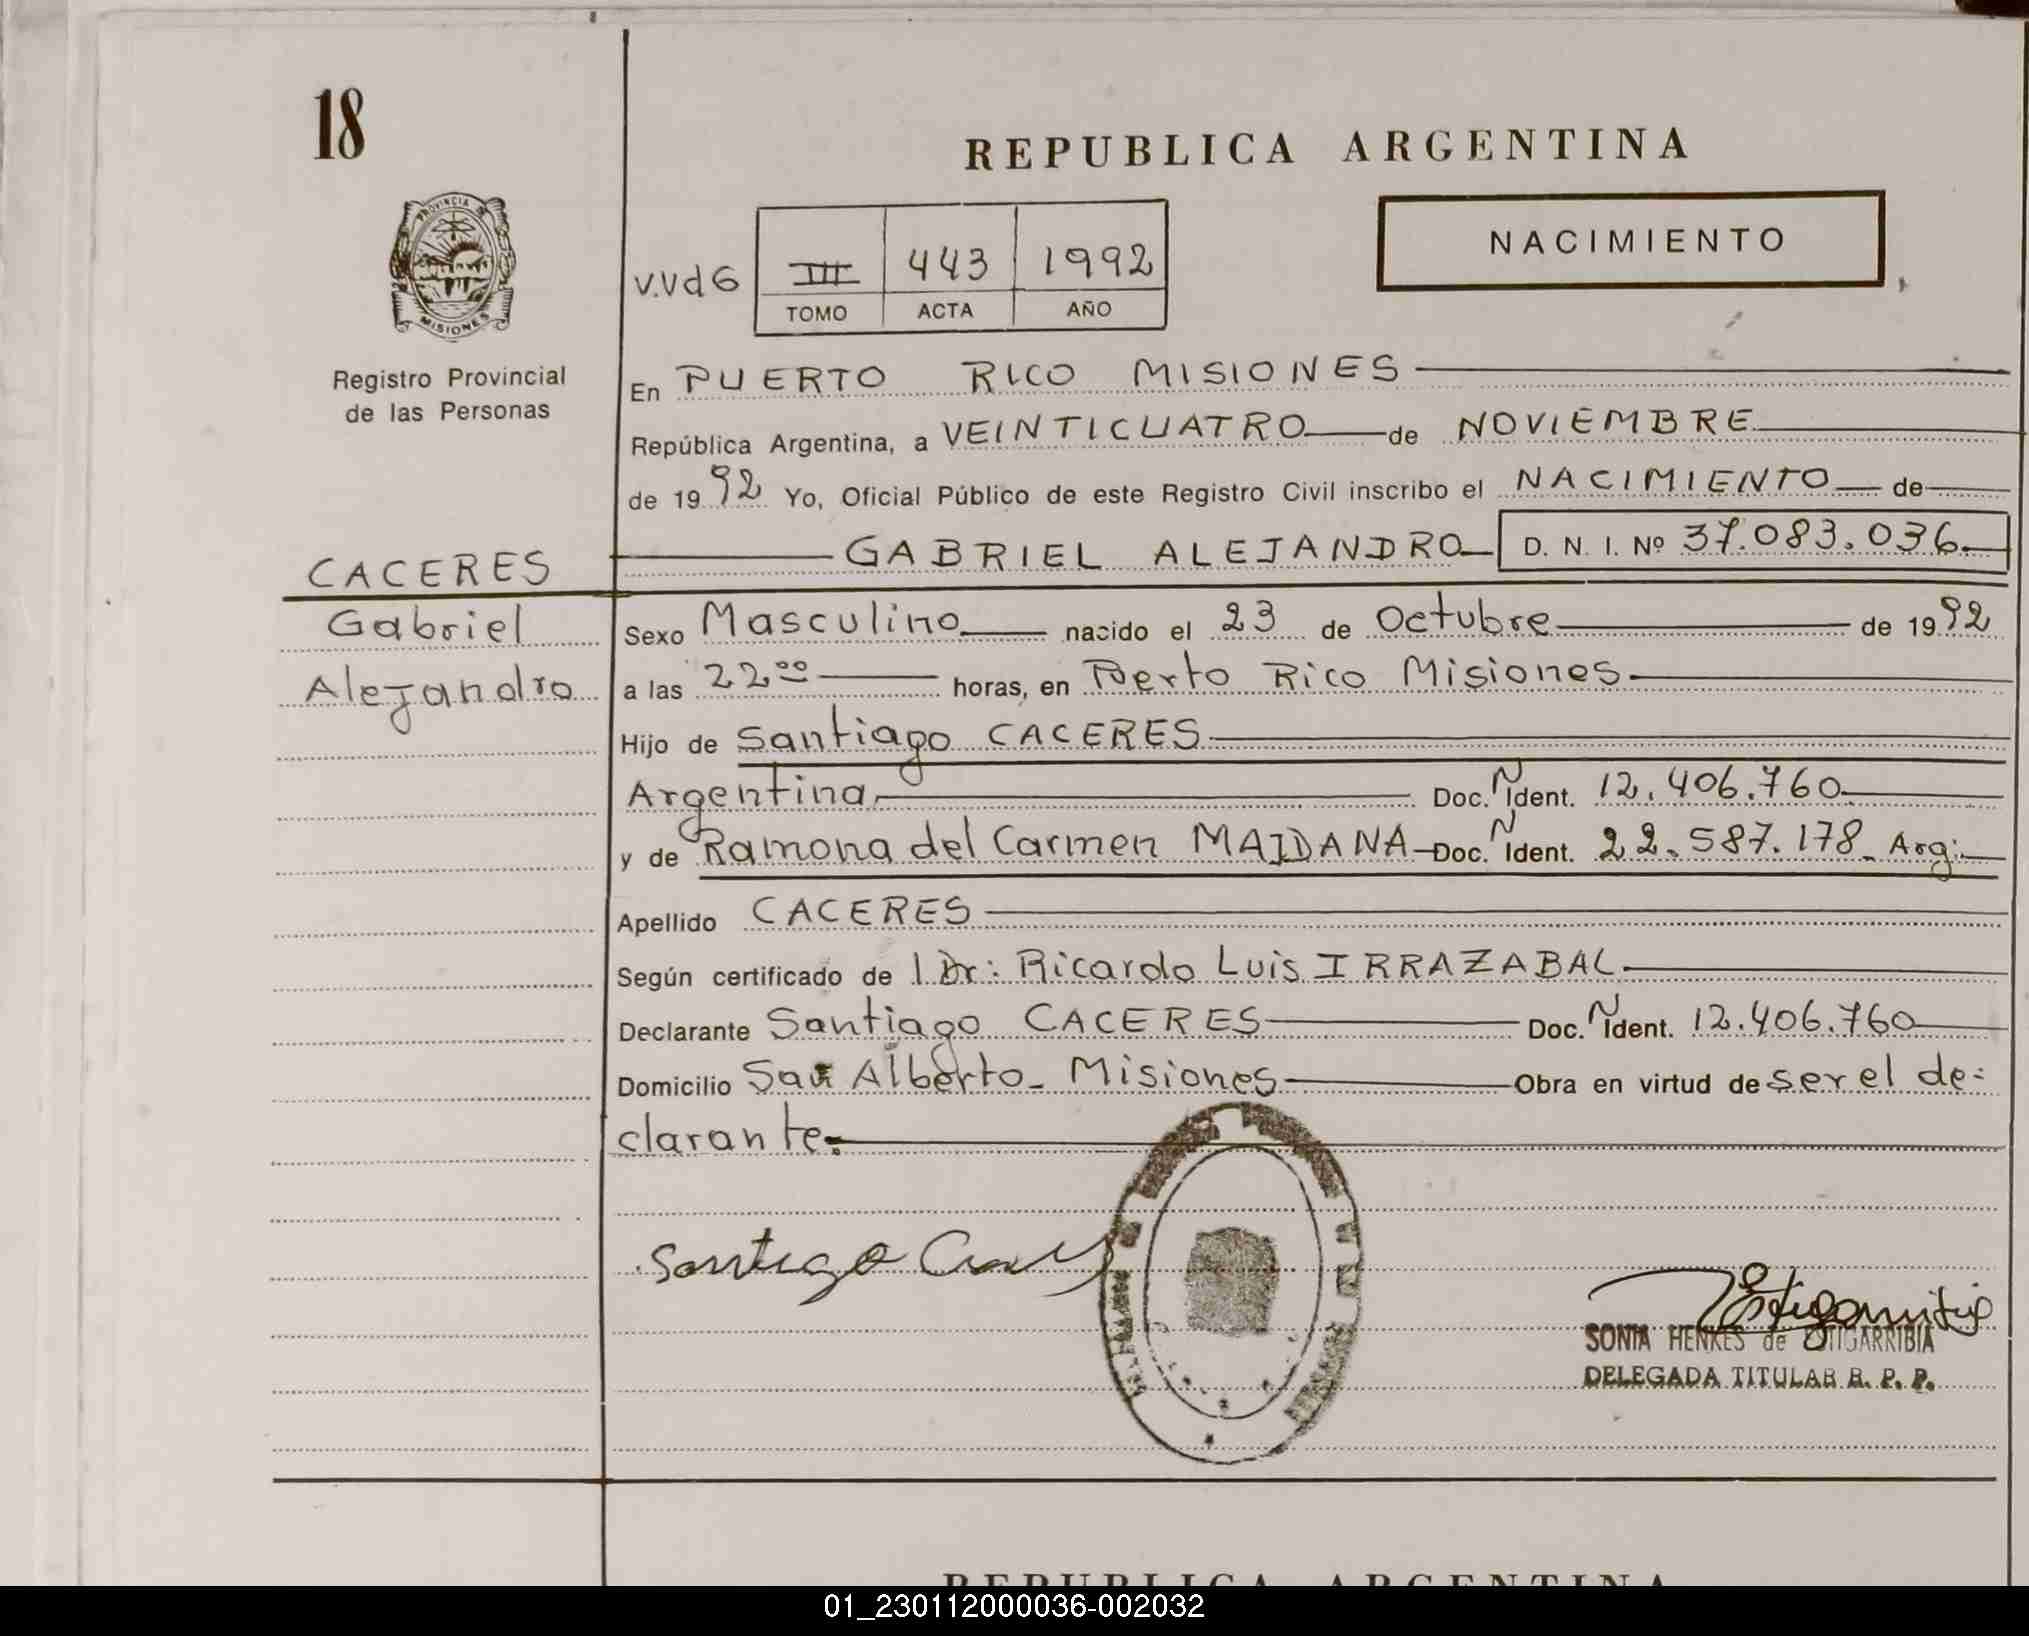 18
REPUBLICA ARGENTINA
NACIMIENTO
PROVINCIA DE
MISIONES
Registro Provincial
de las Personas
V.Vd6
III 443 1992
TOMO ACTA AÑO
En PUERTO RICO MISIONES
República Argentina, a VEINTICUATRO de NOVIEMBRE
de 1992 Yo, Oficial Público de este Registro Civil inscribo el NACIMIENTO de
GABRIEL ALEJANDRO D. N. I. Nº 37.083.036
CACERES
Gabriel
Alejandro
Sexo Masculino nacido el 23 de Octubre de 1992
a las 22⁰⁰ horas, en Perto Rico Misiones
Hijo de Santiago CACERES
Argentina Doc. N Ident. 12.406.760
y de Ramona del Carmen MAIDANA Doc. N Ident. 22.587.178 Arg.
Apellido CACERES
Según certificado de l Dr: Ricardo Luis IRRAZABAL
Declarante Santiago CACERES Doc. N Ident. 12.406.760
Domicilio San Alberto - Misiones Obra en virtud de ser el de=
clarante.
Santiago
SONIA HENKES de ESTIGARRIBIA
DELEGADA TITULAR R. P. P.
REPUBLICA ARGENTINA
01_230112000036-002032